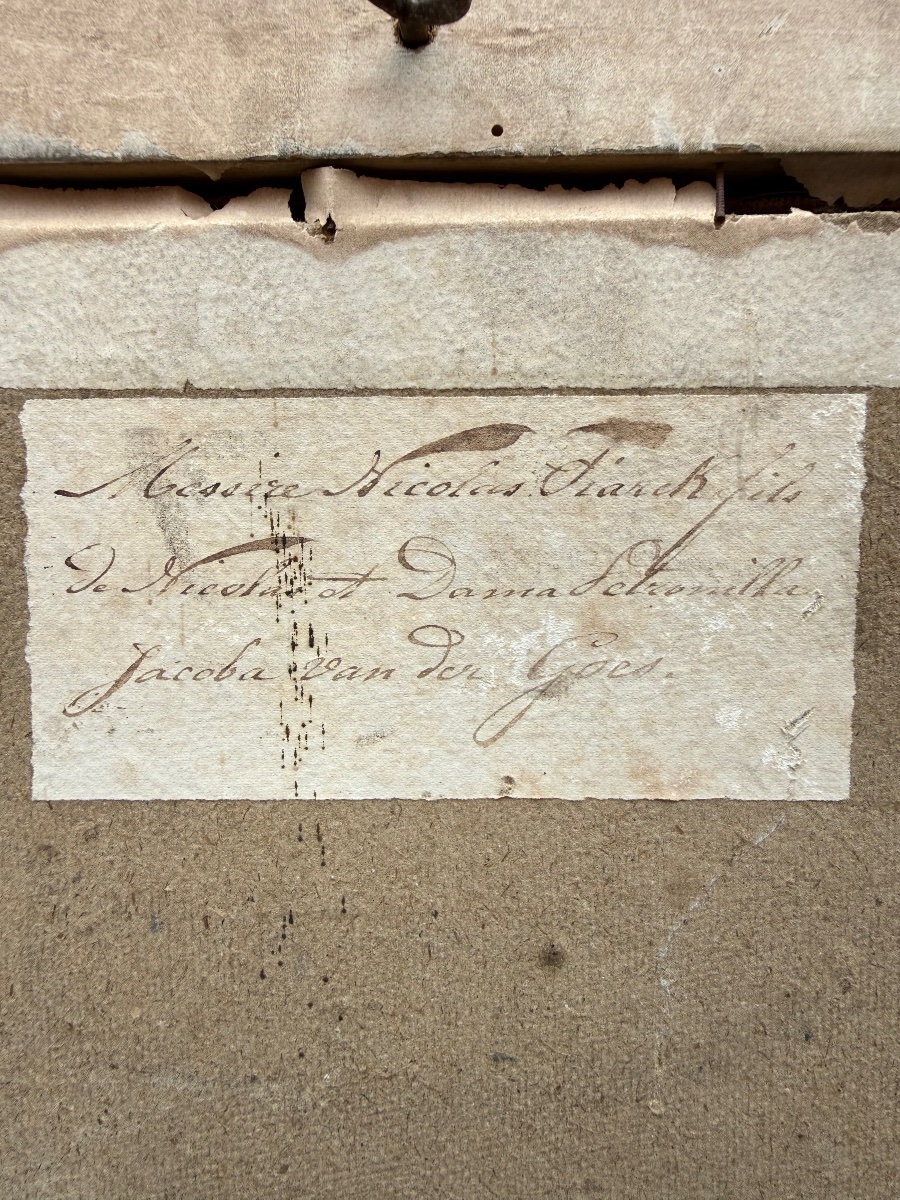 Messire Nicolas Fiarck fils
de Nicolas et Dama Petronilla
Jacoba van der Goes.